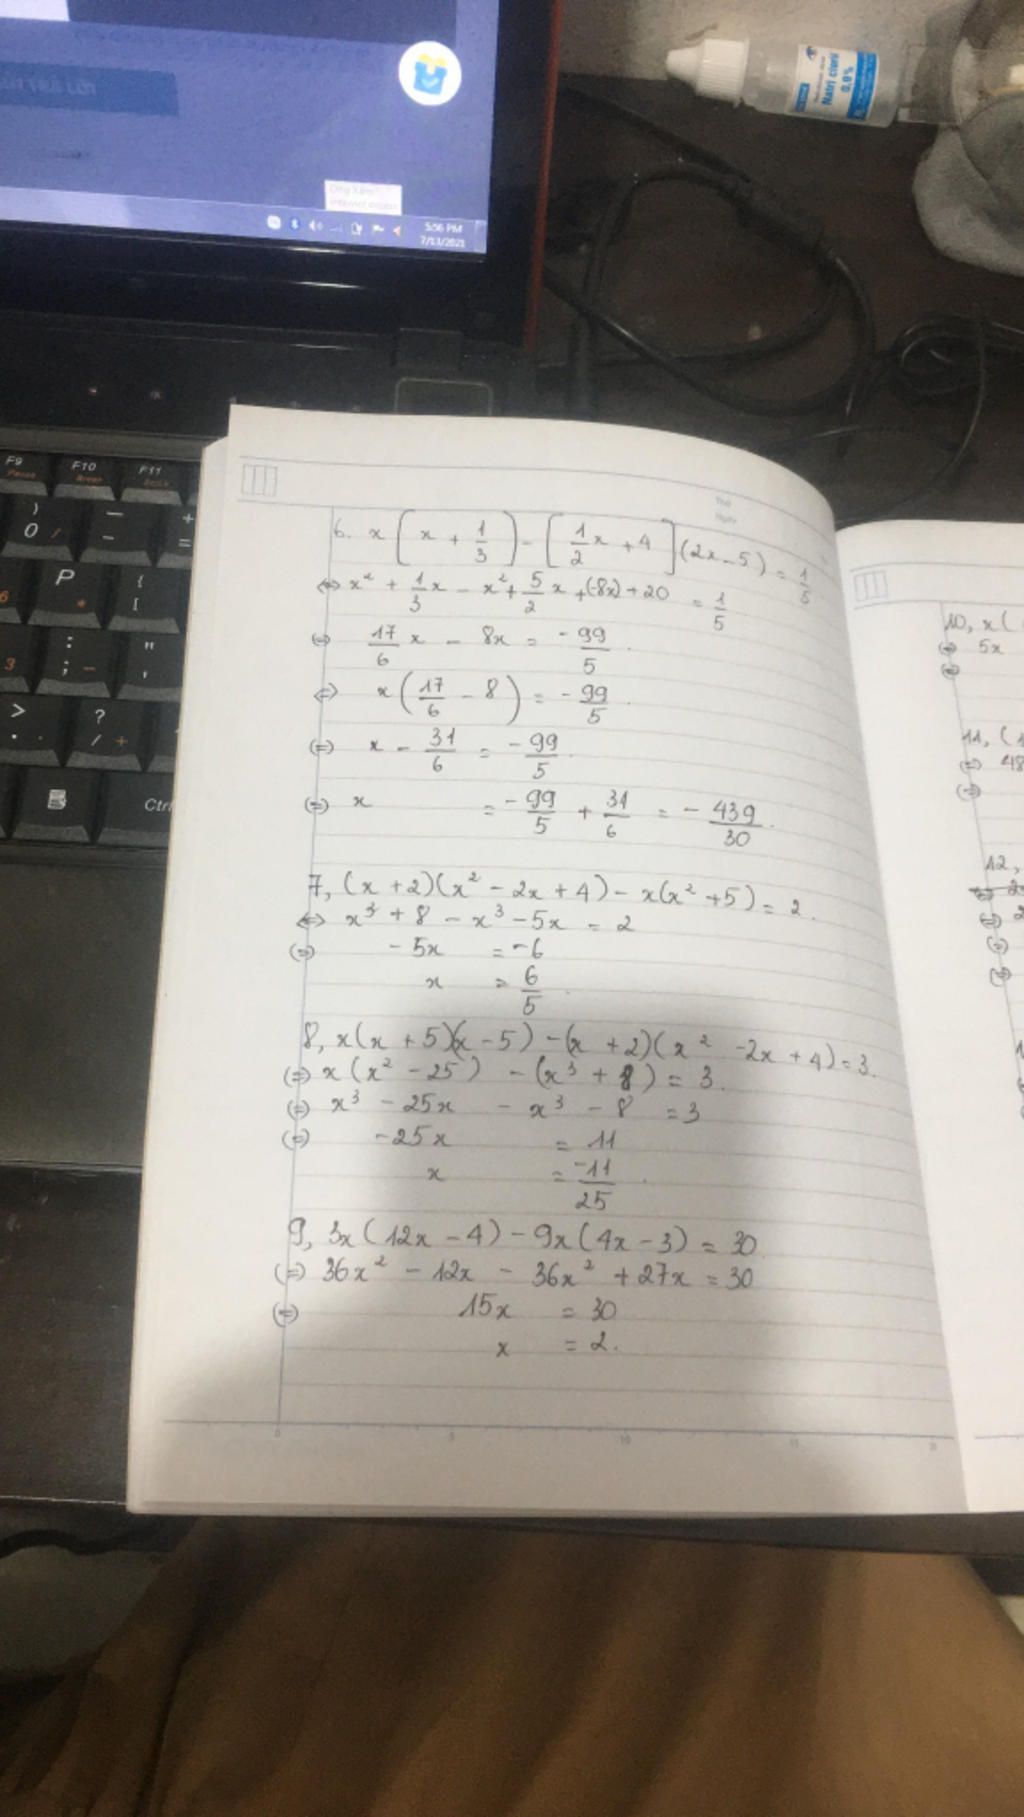 5:56 PM
7/13/2021
Natri clorid
0.9%
F9
F10
F11
)
0
—
-
+
=
P
{
[
:
;
"
'
3
>
.
?
/
+
Ctrl
Thứ
Ngày
6. x [x + 1/3) - [1/2 x + 4](2x - 5) = 1/5
<=> x² + 1/3 x - x² + 5/2 x + (-8x) + 20 = 1/5
<=> 17/6 x - 8x = -99/5.
<=> x(17/6 - 8) = -99/5.
<=> x - 31/6 = -99/5.
<=> x = -99/5 + 31/6 = -439/30.
7, (x + 2)(x² - 2x + 4) - x(x² + 5) = 2.
<=> x³ + 8 - x³ - 5x = 2
<=> - 5x = -6
x = 6/5.
8, x(x + 5)(x - 5) - (x + 2)(x² - 2x + 4) = 3.
<=> x(x² - 25) - (x³ + 8) = 3.
<=> x³ - 25x - x³ - 8 = 3
<=> -25x = 11
x = -11/25.
9, 3x(12x - 4) - 9x(4x - 3) = 30
<=> 36x² - 12x - 36x² + 27x = 30
<=> 15x = 30
x = 2.
0 5 10 15 20
10, x(
<=> 5x
<=>
11, (1
<=> 48
<=>
12,
<=> 2
<=>
<=>